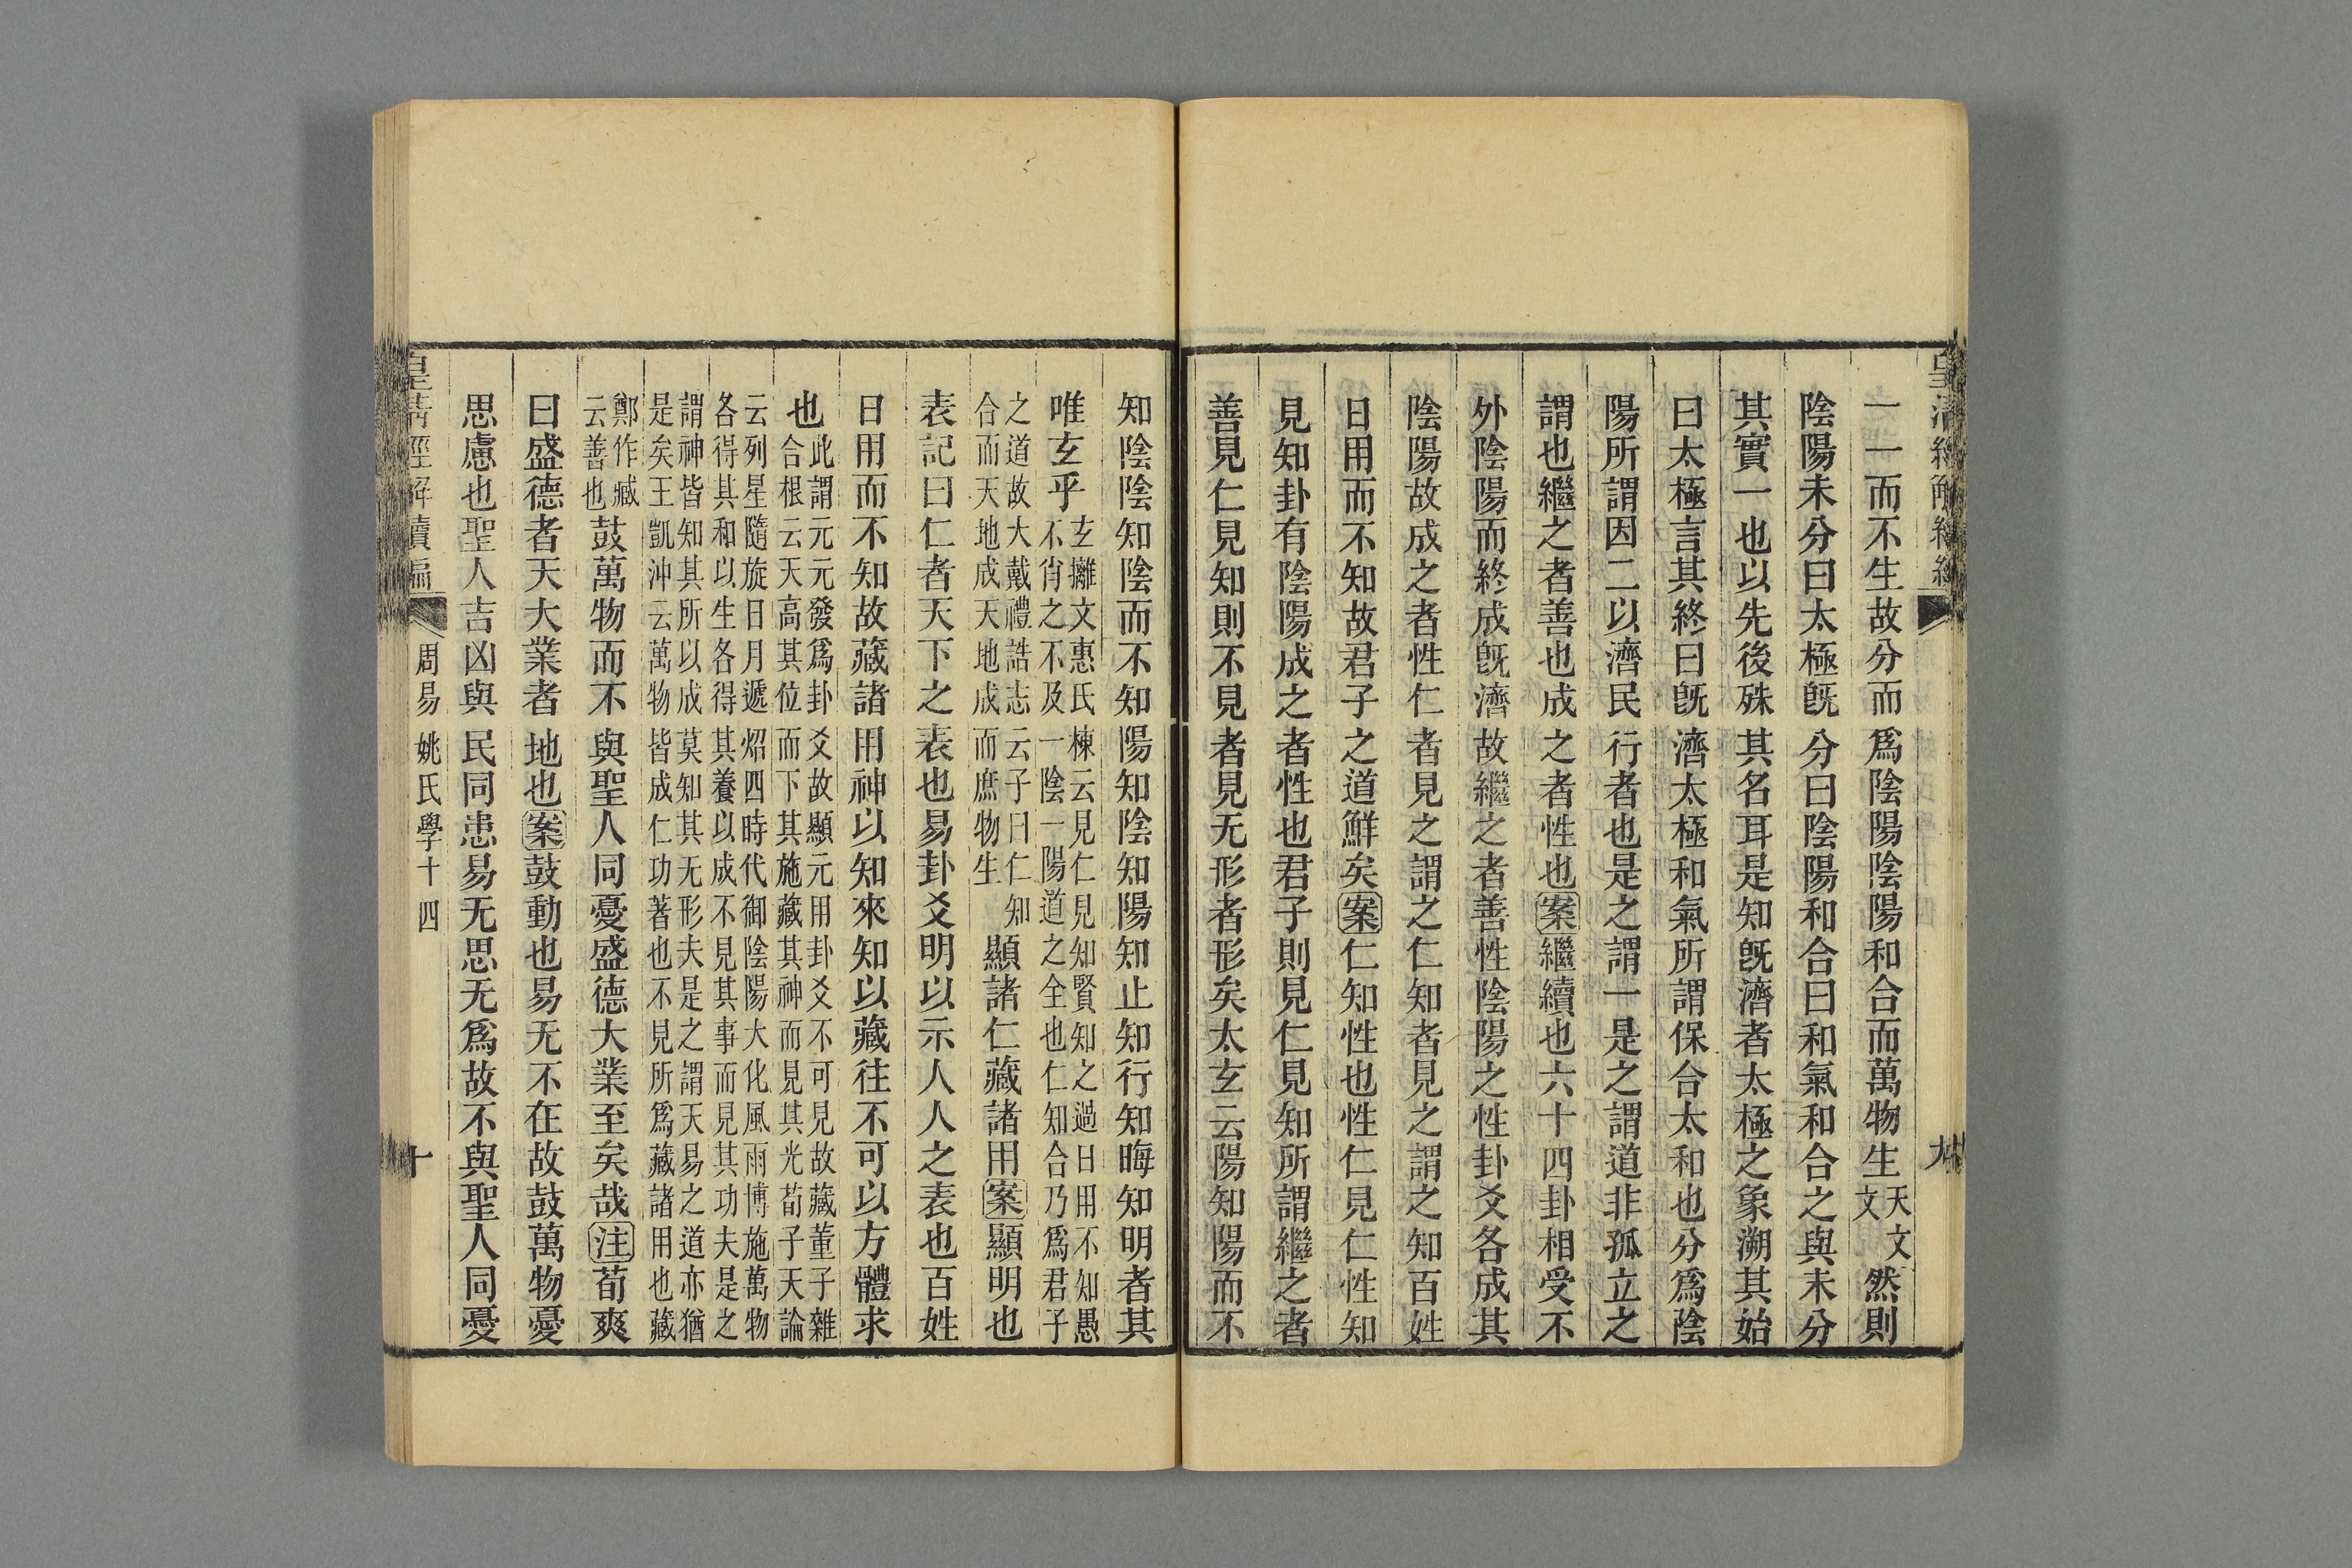 一一而不生故分而爲陰陽陰陽和合而萬物生天文文然則
陰陽未分曰太極旣分曰陰陽和合曰和氣和合之與未分
其實一也以先後殊其名耳是知旣濟者太極之象溯其始
曰太極言其終曰旣濟太極和氣所謂保合太和也分爲陰
陽所謂因二以濟民行者也是之謂一是之謂道非孤立之
謂也繼之者善也成之者性也案繼續也六十四卦相受不
外陰陽而終成旣濟故繼之者善性陰陽之性卦爻各成其
陰陽故成之者性仁者見之謂之仁知者見之謂之知百姓
日用而不知故君子之道鮮矣案仁知性也性仁見仁性知
見知卦有陰陽成之者性也君子則見仁見知所謂繼之者
善見仁見知則不見者見无形者形矣太玄云陽知陽而不
知陰陰知陰而不知陽知陰知陽知止知行知晦知明者其
唯玄乎玄攡文惠氏棟云見仁見知賢知之過日用不知愚
不肖之不及一陰一陽道之全也仁知合乃爲君子
之道故大戴禮誥志云子曰仁知
合而天地成天地成而庶物生
顯諸仁藏諸用案顯明也
表記曰仁者天下之表也易卦爻明以示人人之表也百姓
日用而不知故藏諸用神以知來知以藏往不可以方體求
也此謂元元發爲卦爻故顯元用卦爻不可見故藏董子雜
合根云天高其位而下其施藏其神而見其光荀子天論
云列星隨旋日月遞炤四時代御陰陽大化風雨博施萬物
各得其和以生各得其養以成不見其事而見其功夫是之
謂神皆知其所以成莫知其无形夫是之謂天易之道亦猶
是矣王凱沖云萬物皆成仁功著也不見所爲藏諸用也藏
鄭作臧
云善也
鼓萬物而不與聖人同憂盛德大業至矣哉注荀爽
曰盛德者天大業者地也案鼓動也易无不在故鼓萬物憂
思慮也聖人吉凶與民同患易无思无爲故不與聖人同憂
皇淸經解續編
周易姚氏學十四
十